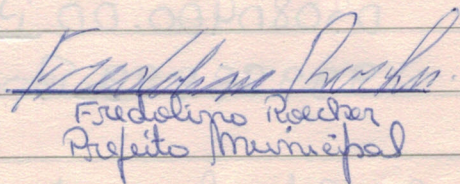 Fredolino Roecker
Fredolino Roecker
Prefeito Municipal